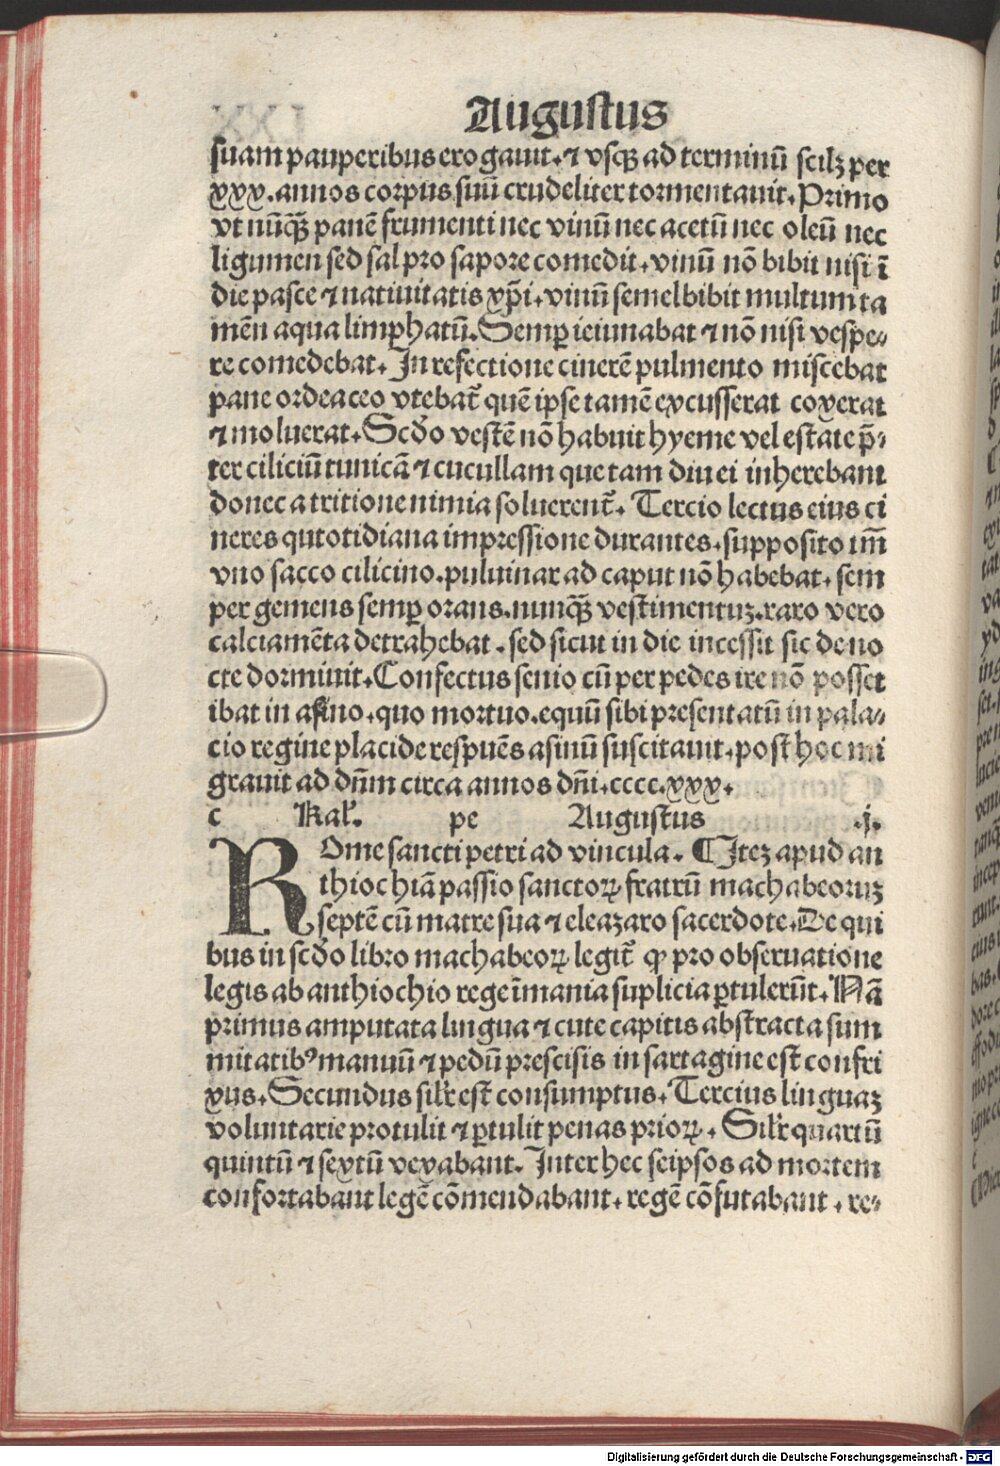 Augustus
suam pauperibus erogauit. ⁊ vsqꝫ ad terminū scilꝫ per
xxx. annos corpus suū crudeliter tormentauit. Primo
vt nūqꝫ̄ panē frumenti nec vinū nec acetū nec oleū nec
ligumen sed sal pro sapore comedit. vinū nō bibit nisi ī
die pasce ⁊ natiuitatis xp̄i. vinū semel bibit multum ta
mēn aqua limphatū. Semꝑ ieiunabat ⁊ nō nisi vespe⸗
re comedebat. In refectione cinerē pulmento miscebat
pane ordeaceo vtebat᷑ quē ipse tamē excusserat coxerat
⁊ moluerat. Scd̕o vestē nō habuit hyeme vel estate p̄⸗
ter ciliciū tunicā ⁊ cucullam que tam diu ei inherebant
donec a tritione nimia soluerent᷑. Tercio lectus eius ci
neres qutotidiana impressione durantes. supposito im̄
vno sacco cilicino. puluinar ad caput nō habebat. sem
per gemens semꝑ orans. nunqꝫ̄ vestimentuꝫ. raro vero
calciamēta detrahebat. sed sicut in die incessit sic de no
cte dormiuit. Confectus senio cū per pedes ire nō posset
ibat in asino. quo mortuo. equū sibi presentatū in pala⸗
cio regine placide respuēs asinū suscitauit. post hoc mi
grauit ad dn̄m circa annos dn̄i. cccc. xxx.
c Kal̕. pe Augustus .j.
ROme sancti petri ad vincula. ¶ Iteꝫ apud an
thiochiā passio sanctoꝝ fratrū machabeoruꝫ
septē cū matre sua ⁊ eleazaro sacerdote. De qui
bus in scd̕o libro machabeoꝝ legit᷑ ꝙ pro obseruatione
legis ab anthiochio rege īmania suplicia ꝑtulerūt. Nā
primus amputata lingua ⁊ cute capitis abstracta sum
mitatibꝰ manuū ⁊ pedū prescisis in sartagine est confri
xus. Secundus sil̕r est consumptus. Tercius linguaꝫ
voluntarie protulit ⁊ ꝑtulit penas prioꝝ. Sil̕r quartū
quintū ⁊ sextū vexabant. Inter hec seipsos ad mortem
confortabant legē cōmendabant. regē cōfutabant. re⸗
Digitalisierung gefördert durch die Deutsche Forschungsgemeinschaft - DFG